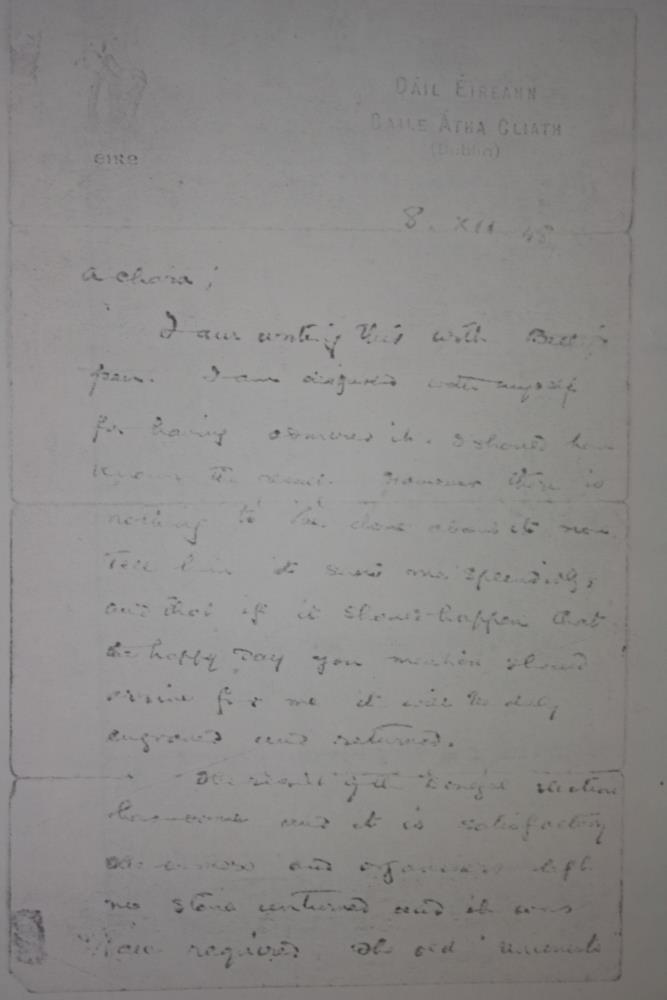 éire
DÁIL ÉIREANN
BAILE ÁTHA CLIATH
(Dublin)
8. XII 48
A chara,
I am writing this with
pen. I am disgusted with myself
for having admired it. I should have
known the result. However there is
nothing to be done about it now
Tell him it suits me splendidly,
and that if it should happen that
the happy day you mention should
arrive for me it will be duly
engraved and returned.
The result of the Donegal election
has come and it is satisfactory
and organisers left
no stone unturned and it was
all required. The old